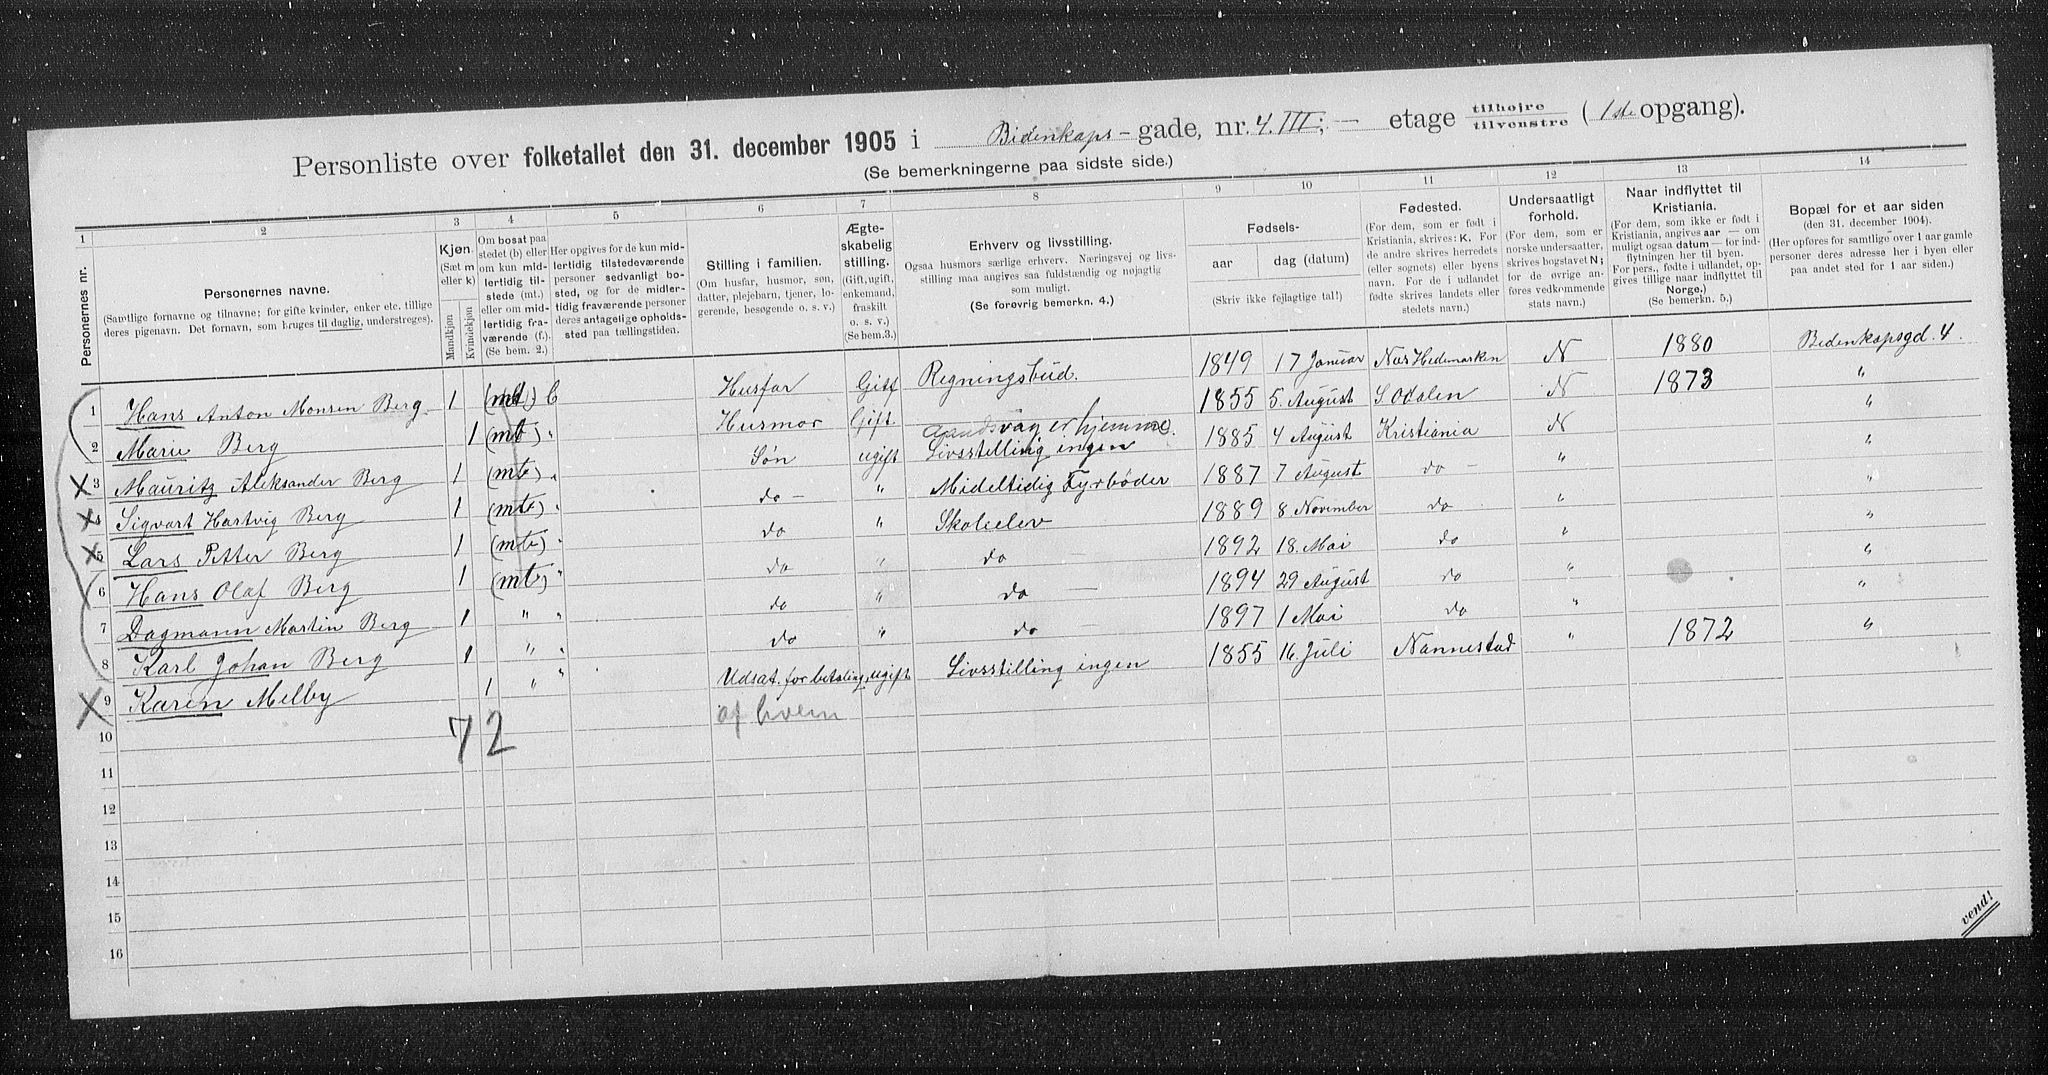 Personliste over folketallet den 31. december 1905 i Bidenkaps-gade, nr. 4. III; — etage tilhøire tilvenstre (1ste opgang).
(Se bemerkningerne paa sidste side.)
1 2 3 4 5 6 7 8 9 10 11 12 13 14
Personernes nr.
Personernes navne.
(Samtlige fornavne og tilnavne; for gifte kvinder, enker etc. tillige deres pigenavn. Det fornavn, som bruges til daglig, understreges).
Kjøn.
(Sæt m eller k)
Mandkjøn
Kvindekjøn
Om bosat paa stedet (b) eller om kun midlertidig tilstede (mt.) eller om midlertidig fraværende (f.)
(Se bem. 2.)
Her opgives for de kun midlertidig tilstedeværende personer sedvanligt bosted, og for de midlertidig fraværende personer deres antagelige opholdssted paa tællingstiden.
Stilling i familien.
(Om husfar, husmor, søn, datter, plejebarn, tjener, logerende, besøgende o. s. v.)
Ægteskabelig stilling.
(Gift, ugift, enkemand, fraskilt o. s. v.)
(Se bem.3.)
Erhverv og livsstilling.
Ogsaa husmors særlige erhverv. Næringsvej og livsstilling maa angives saa fuldstændig og nøjagtig som muligt.
(Se forøvrig bemerkn. 4.)
Fødsels-
aar
dag (datum)
(Skriv ikke fejlagtige tal!)
Fødested.
(For dem, som er født i Kristiania, skrives: K. For de andre skrives herredets (eller sognets) eller byens navn. For de i udlandet fødte skrives landets eller stedets navn.)
Undersaatligt forhold.
(For dem, som er norske undersaatter, skrives bogstavet N; for de øvrige anføres vedkommende stats navn.)
Naar indflyttet til Kristiania.
(For dem, som ikke er født i Kristiania, angives aar — om muligt ogsaa datum — for indflytningen her til byen. For pers., fødte i udlandet, opgives tillige naar indflyttet til Norge.)
(Se bemerkn. 5.)
Bopæl for et aar siden
(den 31. december 1904).
(Her opføres for samtlige over 1 aar gamle personer deres adresse her i byen eller paa andet sted for 1 aar siden.)
1 Hans Anton Monsen Berg. 1 b Husfar Gift Regningsbud. 1849 17 Januar Nes Hedemarken N 1880 Bidenkapsgd. 4.
2 Marie Berg 1 (mt) " Husmor Gift. 1855 5. August S Odalen N 1873 "
3 Mauritz Aleksander Berg 1 (mt) " Søn ugift Livsstilling ingen 1885 4 August Kristiania N "
4 Sigvart Hartvig Berg 1 (mt) " do — " Mideltidig Fyrbøder 1887 7 August do — " "
5 Lars Petter Berg 1 (mt) " do " Skoleelev 1889 8 November do " "
6 Hans Olaf Berg 1 (mt) " do " do — 1892 18. Mai do " "
7 Dagmann Martin Berg 1 " " do " do — 1894 29 August do " "
8 Karl Johan Berg 1 " " do " do — 1897 1 Mai do " "
9 Karen Melby 1 " " Udsat. for betaling, ugift Livsstilling ingen 1855 16. Juli Nannestad " 1872 "
af hvem
7 2
10
11
12
13
14
15
16
vend!